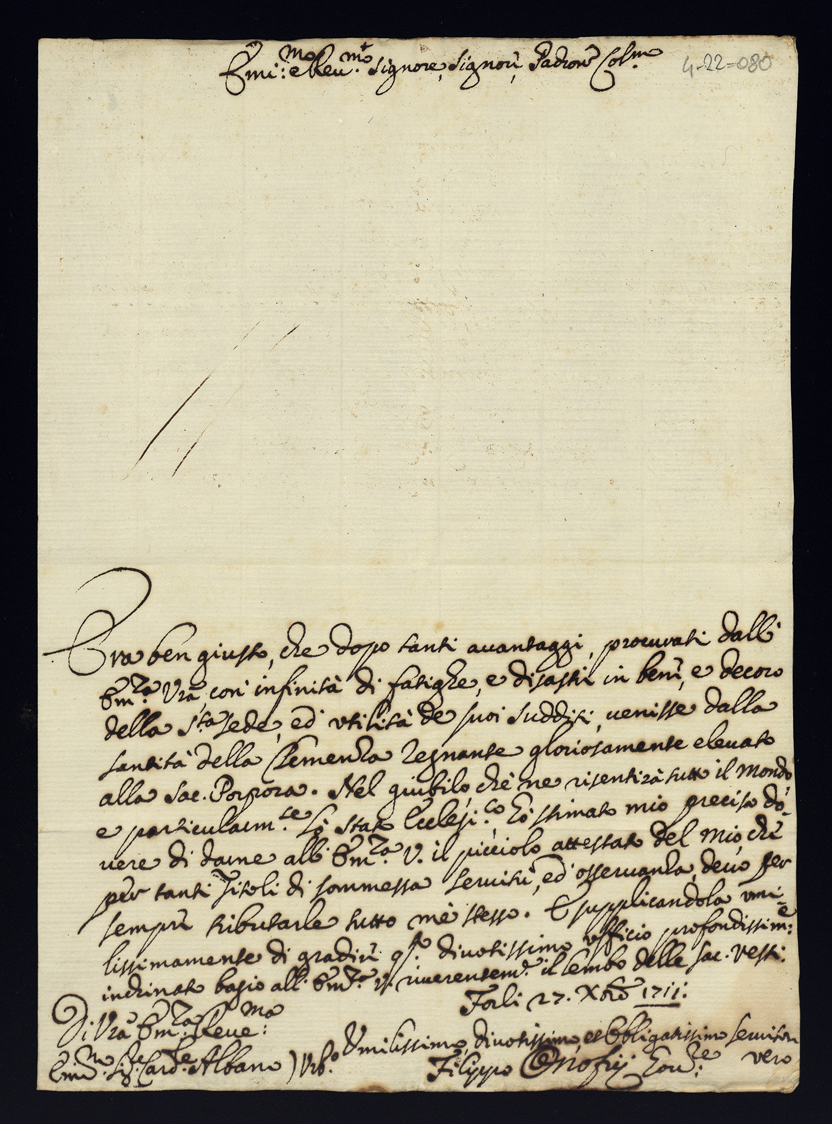 Emi:mo e Reu:mo Signore, Signori, Padrone Colmo
4-22-080
Era ben giusto, che dopo tanti auantaggi, procurati dall'
Em:za Vra, con infinità di fatighe, e disastri in beni, e decoro
della Sta Sede, ed vtilità de suoi Sudditi, uenisse dalla
Santità della Clemenza regnante gloriosamente eleuato
alla Sac. Porpora. Nel giubilo, che ne risentirà tutto il mondo
e particolarm:te lo Stato Eccles:co hò stimato mio preciso do=
uere di darne all' Em:za V. il picciolo attestato del mio, che
per tanti Titoli di sommessa seruitù, ed osseruanza, deuo per
sempre tributarle tutto mè stesso. E supplicandola vmi=
lissimamente di gradire qsto diuotissimo vfficio profondissim:e
inchinato bagio all' Em:za V. riuerentem:e il lembo delle Sac. Vesti:
Forlì 27. Xbre 1711:
Di Vra Em:za Reue:ma
Vmilissimo diuotissimo, et obbligatissimo seruitore
Em:o Sig:r Card:le Albano ) Vrb:o
Filippo Onofrij Gou:re vero